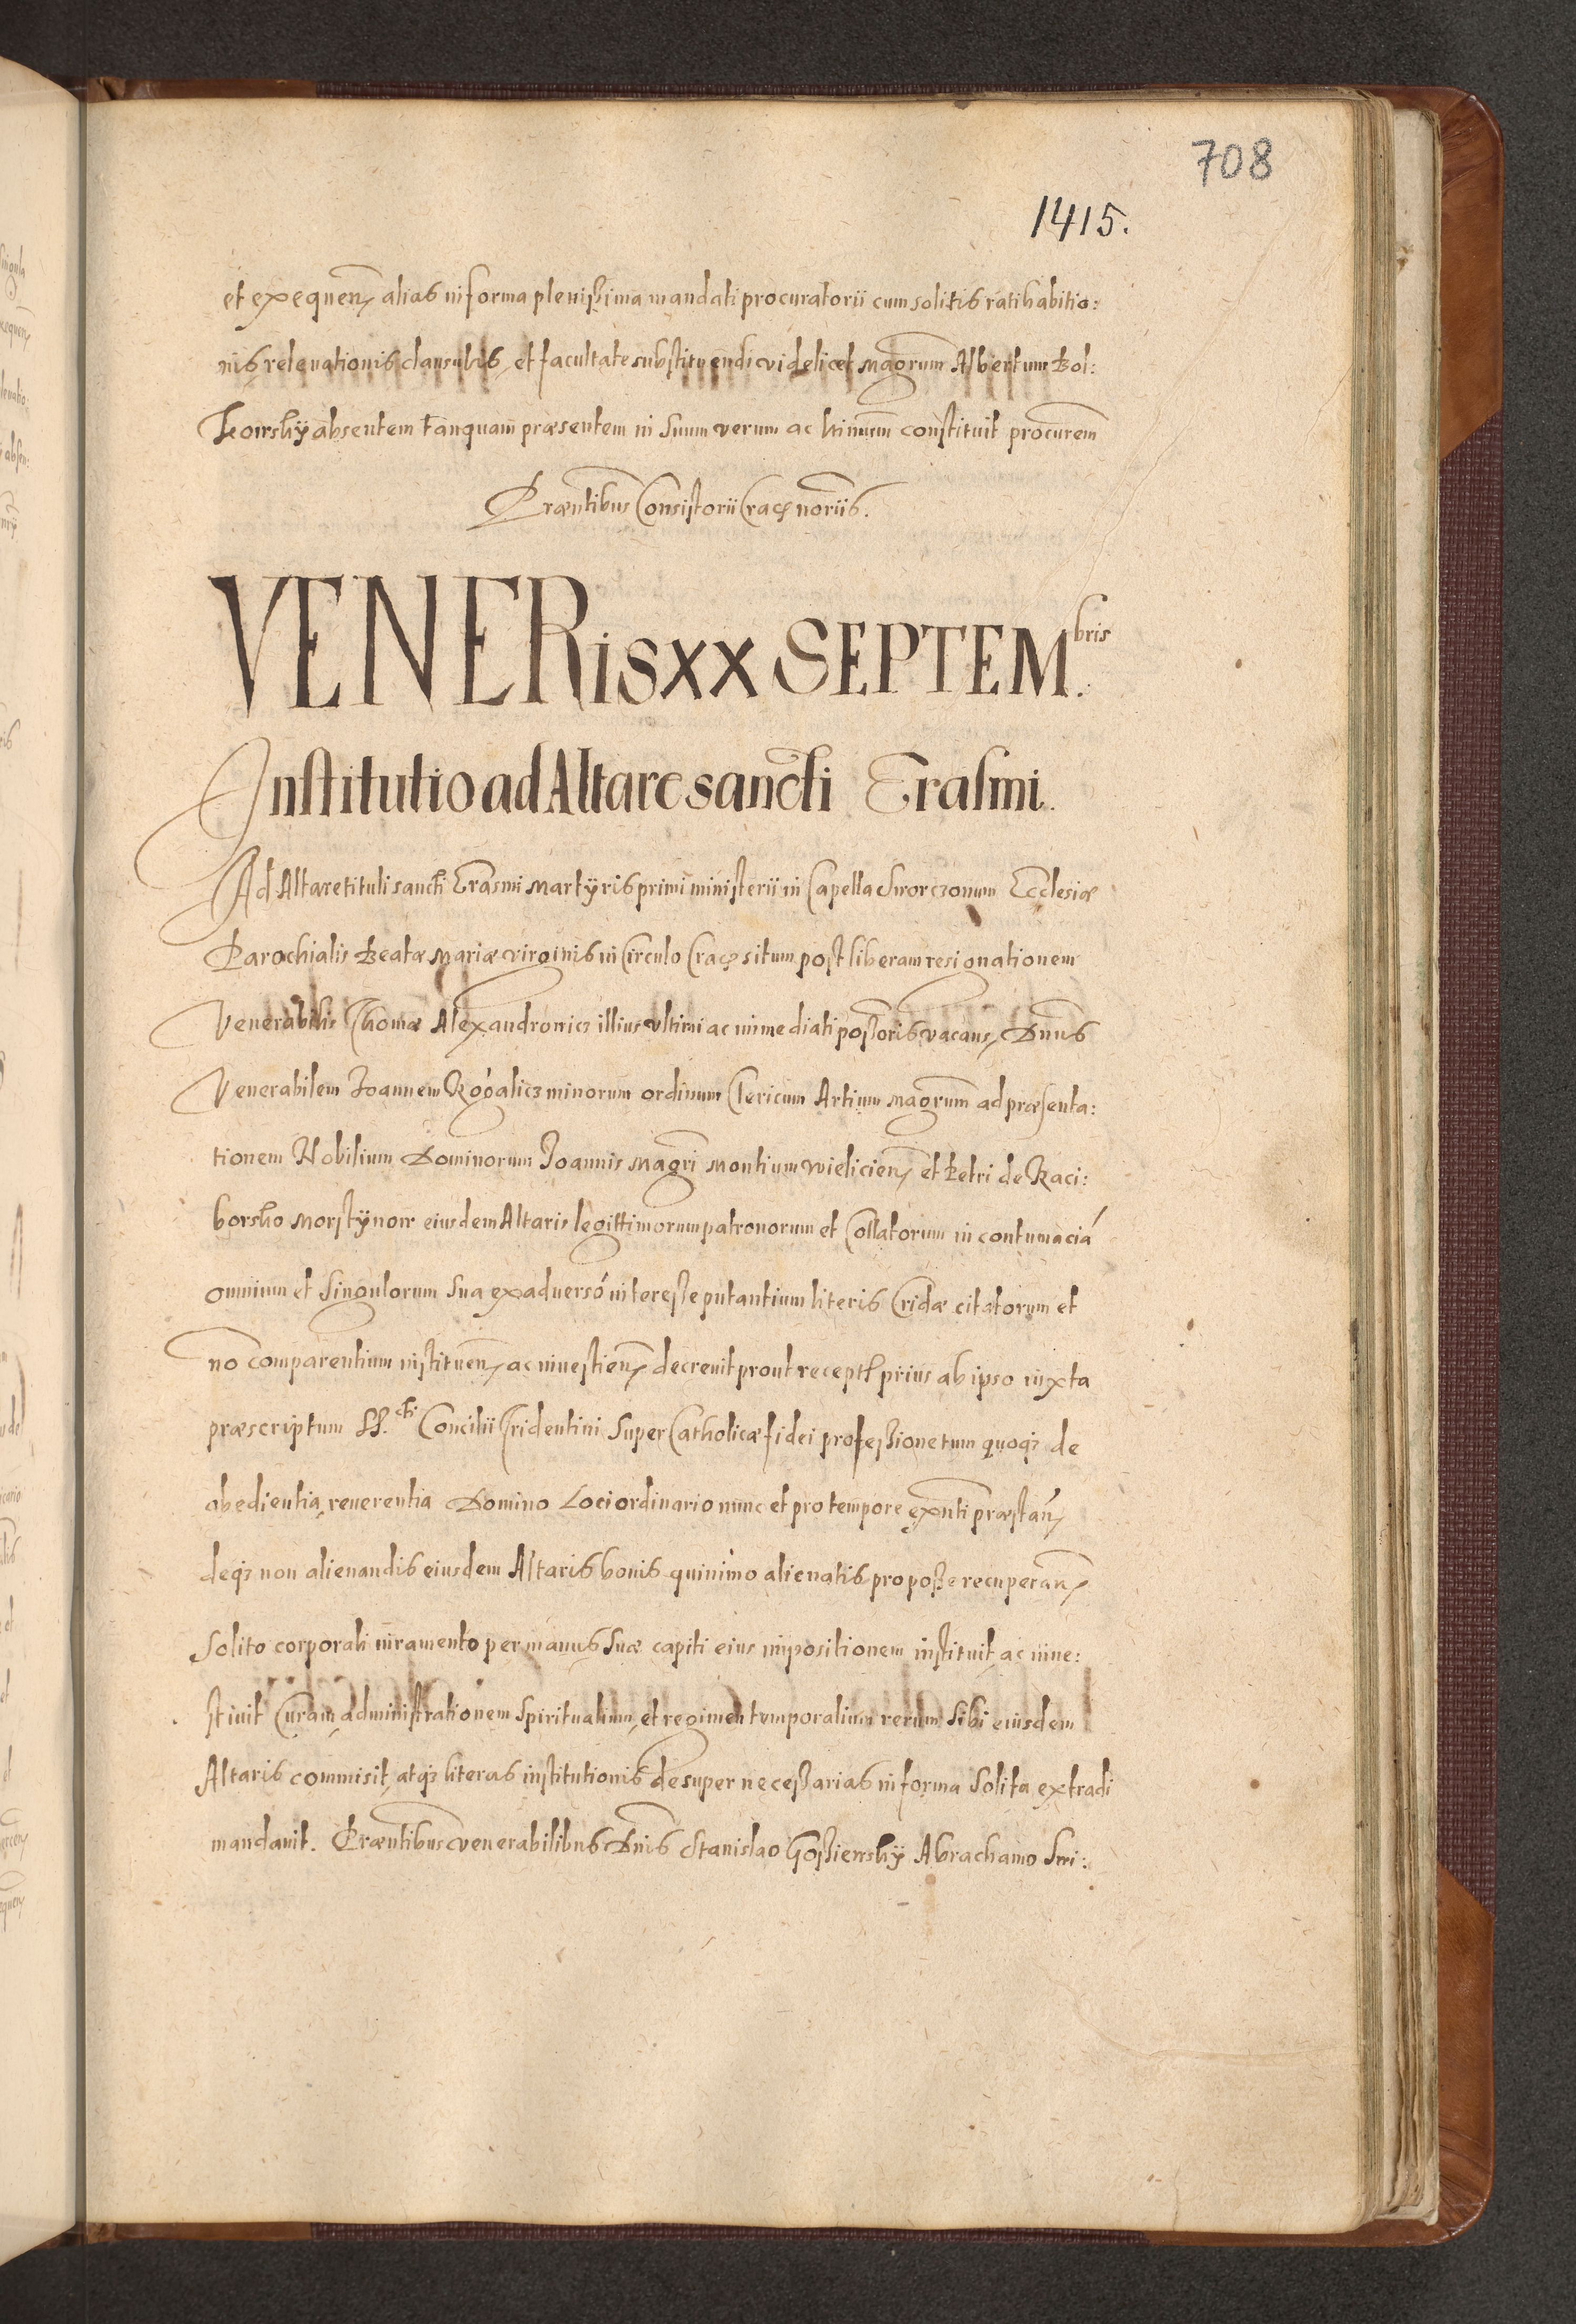 708
1415.
et exequen̄ alias in forma plenißima mandati procuratorii cum solitis ratihabitio:
nis, relevationis clausulis, et facultate substituendi videlicet Magrum̄ Albertum Bol:
absentem tanquam præsentem in suum verum ac ltimum̄ constituit procurem̄
Præntibus Consistorii Crac̄ noriis.
VENERis XX SEPTEM.bris
Institutio ad Altare sancti Erasmi.
Ad Altare tituli sancti Erasmi Martyris primi ministerii in Capella Sworczonum Ecclesiæ
Parochialis Beatæ Mariæ virginis in Circulo Crac̄ situm post liberam resignationem
Venerabilis Thomæ Alexandrowicz illius vltimi ac immediati poßoris vacans, Dnūs
Venerabilem Joannem Rogalicz minorum ordinum Clericum Artium Magrum̄ ad præsenta:
tionem Nobilium Dominorum Joannis Magri Montium Wielicien̄ et Petri de Raci:
borsko Morstynow eiusdem Altaris legittimorum patronorum et Collatorum in contumaciá
omnium et singulorum sua ex aduersó intereße putantium literis Cridæ citatorum et
nō comparentium instituen̄ ac inuestien̄ decreuit prout recepto prius ab ipso iuxta
præscriptum SS.cti Concilii Tridentini super Catholicæ fidei profeßione tum quoq3 de
obedientia, reuerentia Domino Loci ordinario nunc et pro tempore exn̄ti præstan̄
deq3 non alienandis eiusdem Altaris bonis quinimo alienatis pro poße recuperan̄
solito corporali iuramento per manus suæ capiti eius impositionem instituit, ac inue:
stiuit Curam, administrationem spiritualium, et regimen temporalium rerum sibi eiusdem
Altaris commisit, atq3 literas institutionis desuper neceßarias in forma solita extradi
mandauit. Præntibus venerabilibus Dnis Stanislao Goßiewsky Abrachamo Smi: